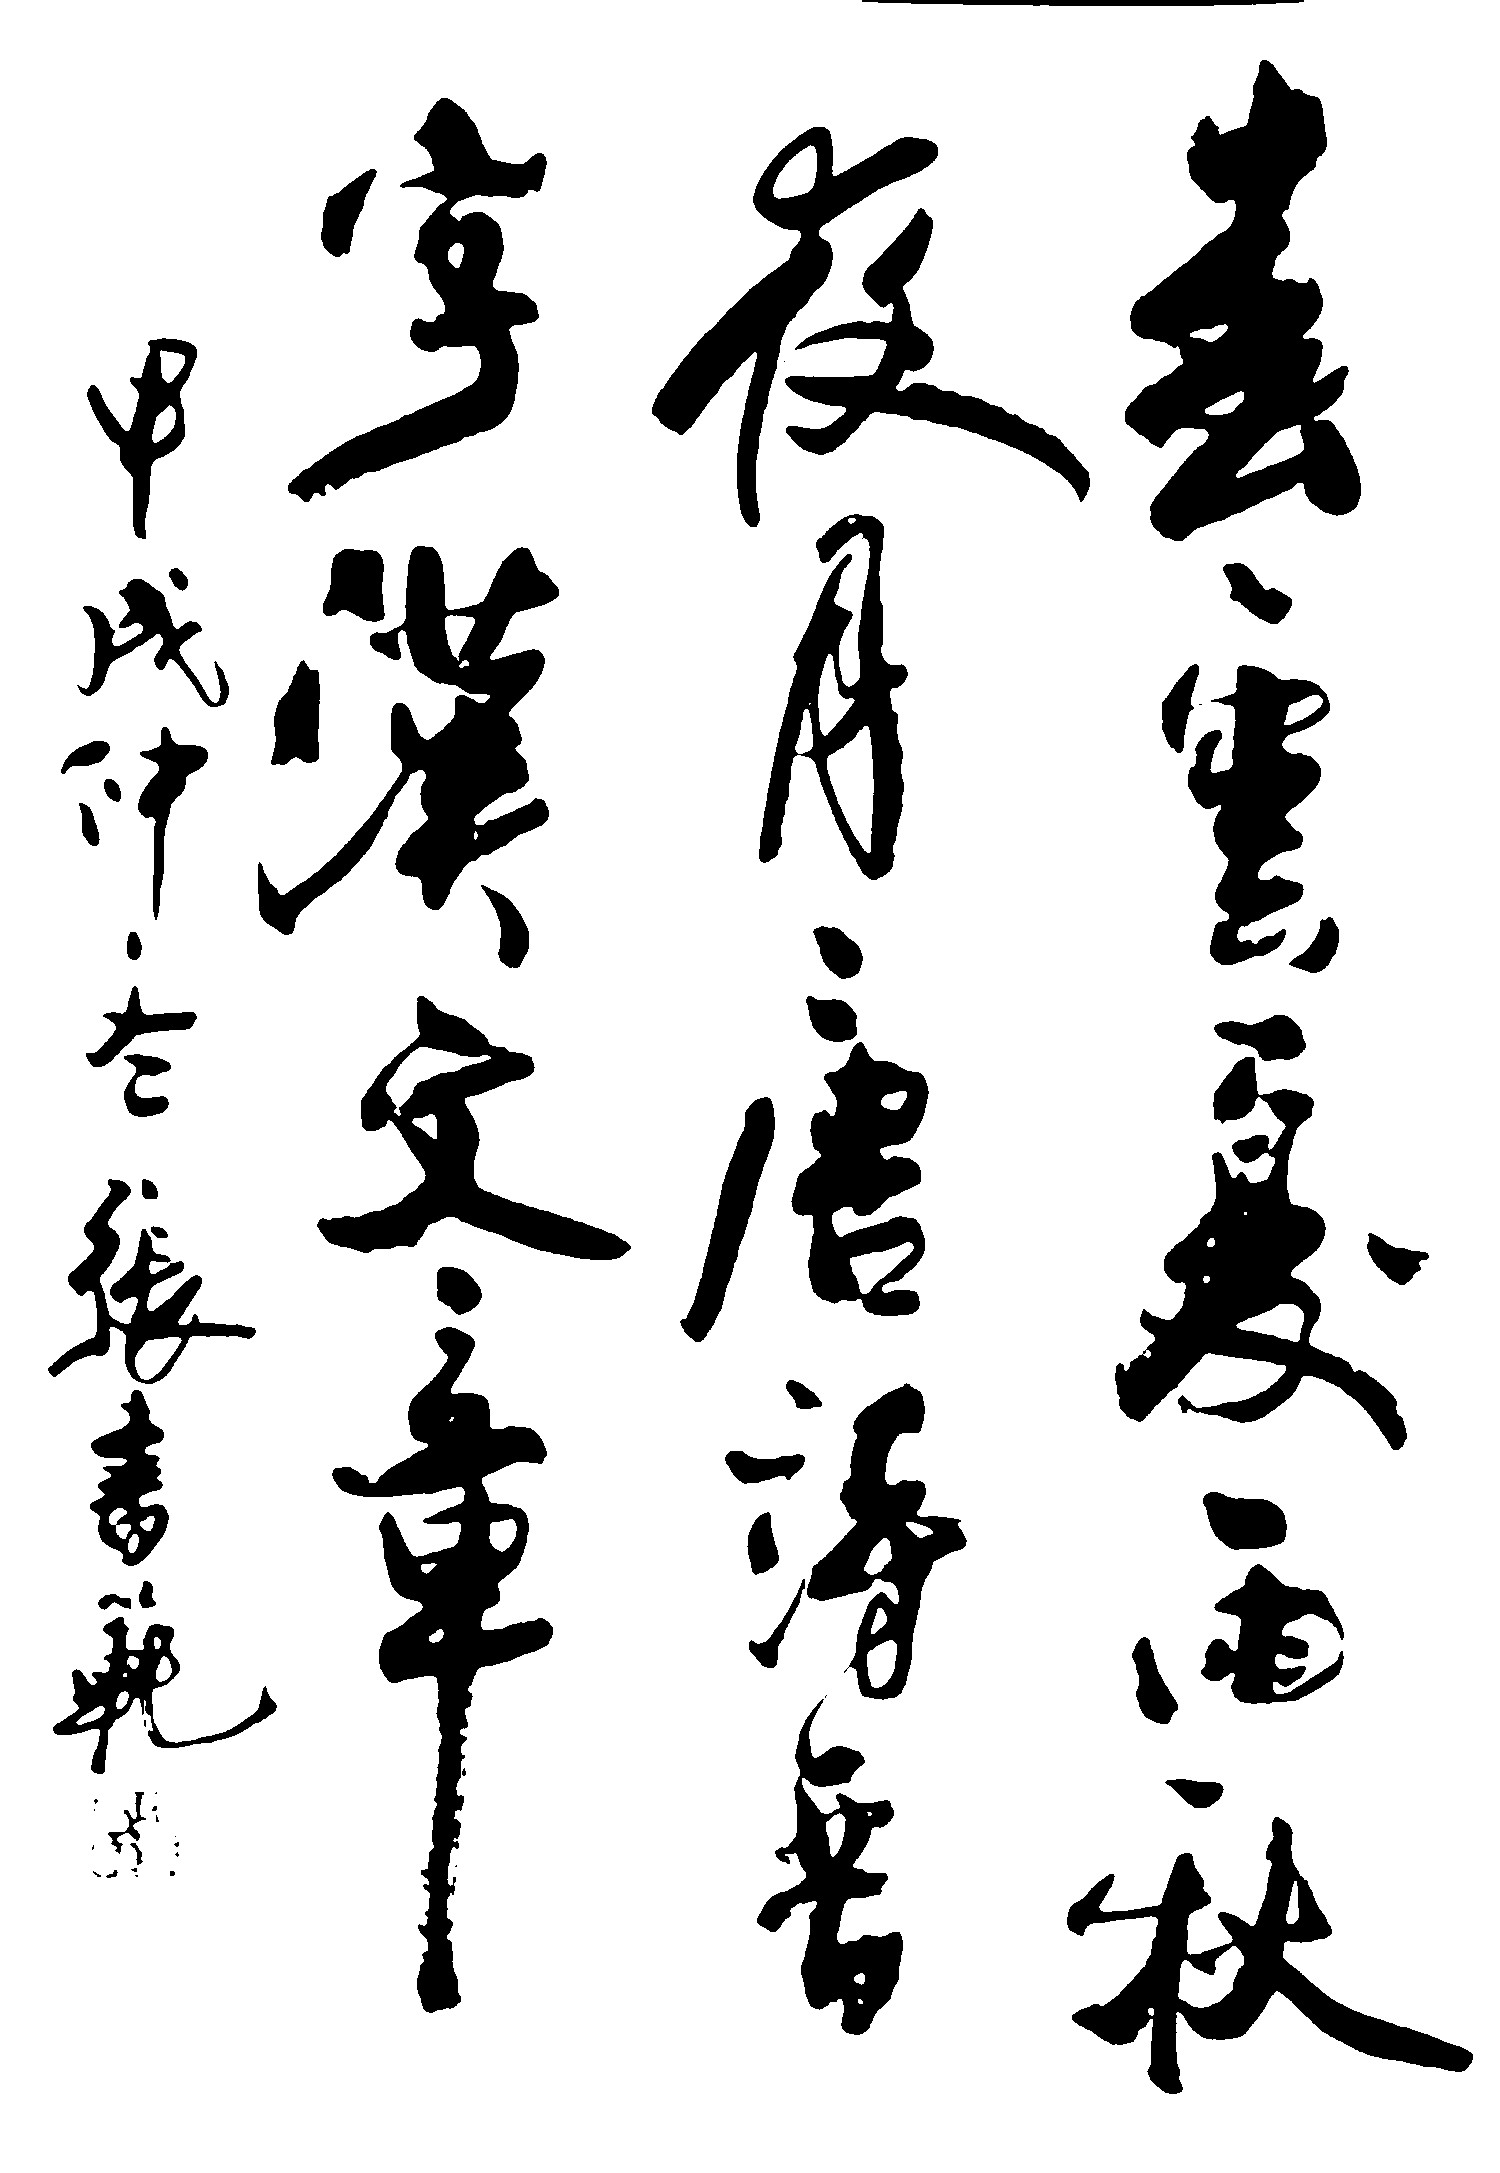 春雲夏雨秋
夜月唐詩晉
字漢文章
甲戌仲張書範